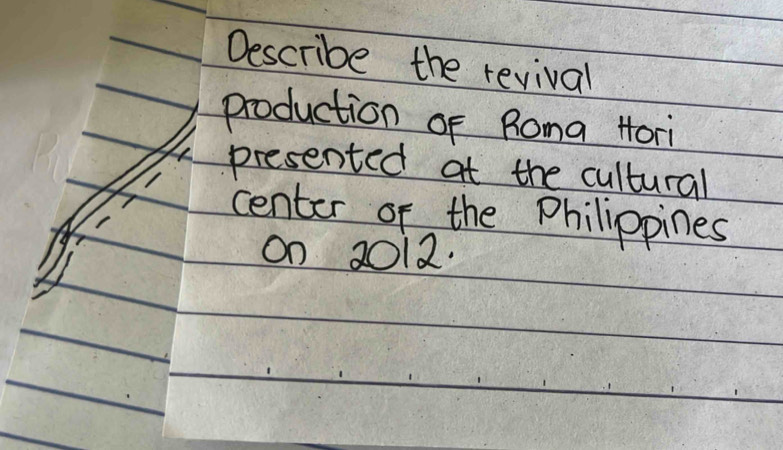 Describe the revival
production of Roma Hari
presented at the cultural
center of the Philippines
on 2012.